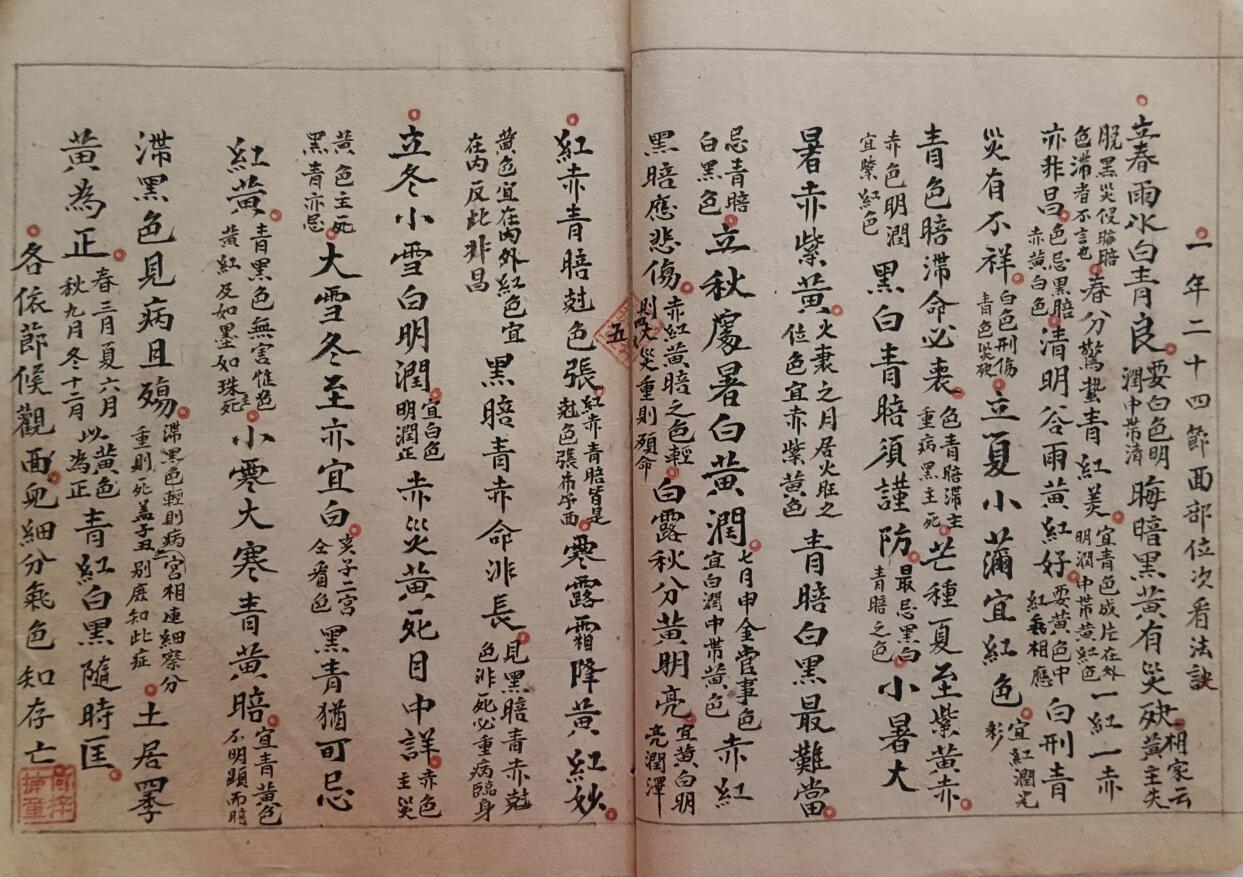 一年二十四節面部位次看法訣
立春雨水白青良要白色明潤中帶清晦暗黑黃有災殃相家云黃主失
脫黑災侵臨暗色滯者不言也春分驚蟄青紅美宜青色成片在外明潤中帶黃紅色一紅一赤
亦非昌色忌黑暗赤黃白色清明谷雨黃紅好要黃色中紅氣相應白刑青
災有不祥白色刑傷青色災殃立夏小滿宜紅色宜紅潤光彩
青色暗滯命必衰色青暗滯主重病黑主死芒種夏至紫黃赤
赤色明潤宜紫紅色黑白青暗須謹防最忌黑白青暗之色小暑大
暑赤紫黃火衰之月居火旺之位色宜赤紫黃色青暗白黑最難當
忌青暗白黑色立秋處暑白黃潤七月申金當事色宜白潤中帶黃色赤紅
黑暗應悲傷赤紅黃暗之色輕則災重則殞命白露秋分黃明亮宜黃白明亮潤澤
五
紅赤青暗尅色張紅赤青暗皆是尅色張布于面寒露霜降黃紅妙
黃色宜在內外紅色宜在內反此非昌黑暗青赤命非長見黑暗青赤尅色非死必重病臨身
立冬小雪白明潤宜白色明潤正赤災黃死目中詳赤色主災
黃色主死黑青亦忌大雪冬至亦宜白亥子二宮仝看色黑青猶可忌
紅黃青黑色無害惟忌黃紅及如墨如珠主死小寒大寒青黃暗宜青黃色不明顯而暗
滯黑色見病且殤滯黑色輕則病重則死蓋子丑二宮相連細察分別庶知此症土居四季
黃為正春三月夏六月秋九月冬十二月以黃色為正青紅白黑隨時匡
各依節候觀面皃細分氣色知存亡